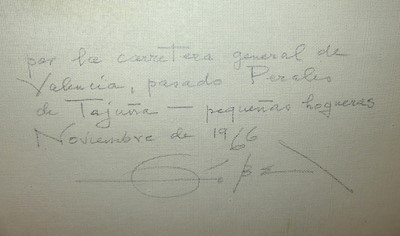 por la carretera general de
Valencia, pasado Perales
de Tajuña — pequeñas hogueras
Noviembre de 1966